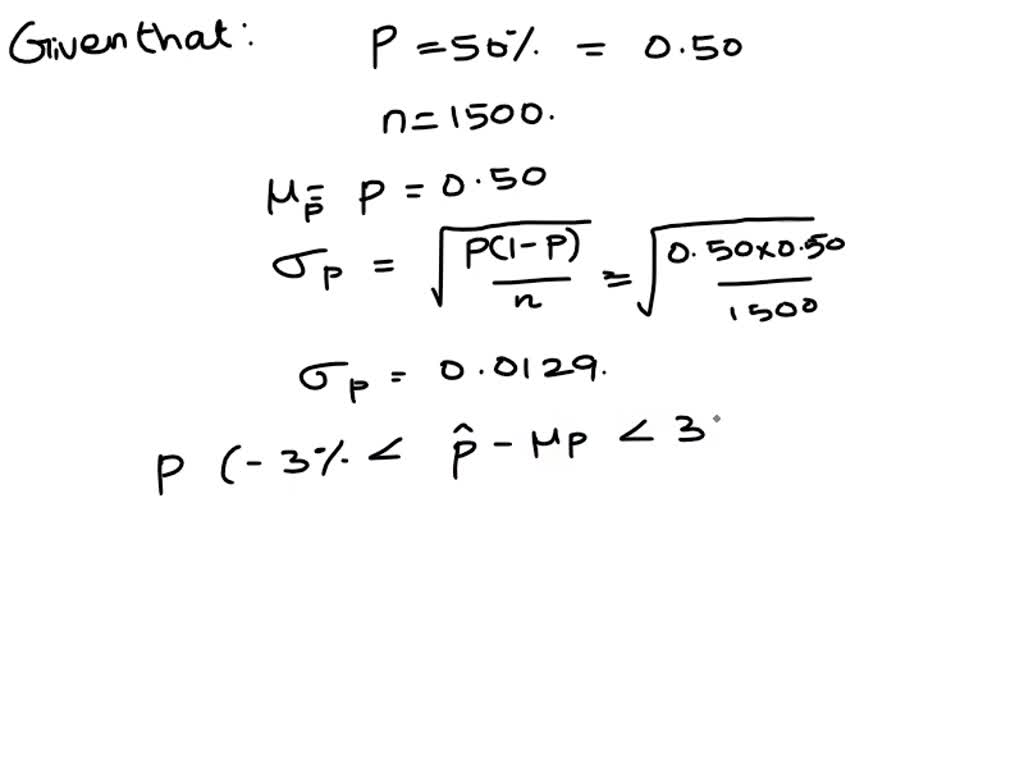 Given that: P = 50% = 0.50
n = 1500.
μp̂ = P = 0.50
σp = √(P(1-P)/n) = √(0.50x0.50/1500)
σp = 0.0129.
P (-3% < p̂ - μp < 3